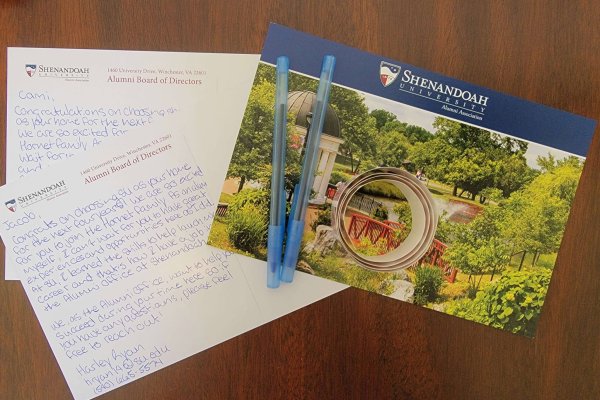 SHENANDOAH
UNIVERSITY
Alumni Association
1460 University Drive, Winchester, VA 22601
Alumni Board of Directors
Cami,
Congratulations on choosing
as your home for the next
we are so excited for
Hornet Family
wait for
SHENANDOAH
UNIVERSITY
1460 University Drive, Winchester, VA 22601
Alumni Board of Directors
Jacob,
Congrats on choosing SU as your home
for the next four years! We are so excited
for you to join the Hornet Family. As an
myself, I can't wait for you to have
experiences and opportunities here as I did
at SU. I learned the skills to help launch my
career and that's how I have a job in
the Alumni Office at Shenandoah
We as the Alumni Office want to help you
succeed during your time here so if
you have any questions, please feel
free to reach out!
Harley Ryan
(540) 665-5574
SHENANDOAH
UNIVERSITY
Alumni Association